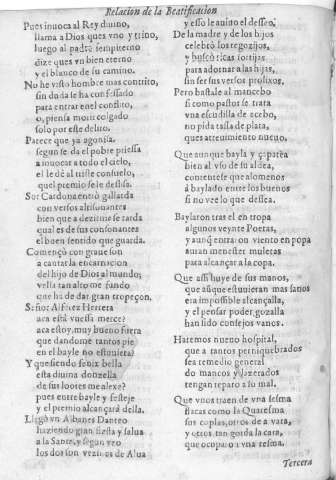 Relacion de la Beatificacion
Pues inuoca al Rey diuino,
llama a Dios que es vno y trino,
luego al padre sempiterno
dize que es vn bien eterno
y el blanco de su camino.
No he visto hombre mas contrito,
sin duda se ha confessado
para entrar en el conflito,
o, piensa morir colgado
solo por este delito.
Parece que ya agoniza,
segun se da el pobre priessa
a inuocar a todo el cielo,
el le dè al triste consuelo,
que el premio se le desliza.
Sor Cardona entrò gallarda
con versos altisonantes
bien que a dezirme se tarda
qual es de sus consonantes
el buen sentido que guarda.
Començò con graue son
a cantar la encarnacion
del hijo de Dios al mundo;
vella tan alto me fundo
que ha de dar gran tropeçon.
Señor Alferez Herrera
aca està vuessa merce?
aca estoy, muy bueno fuera
que dandome tantos pie
en el bayle no estuuiera?
Y queriendo feniz bella
esta diuina donzella
de sus loores me alexe?
pues entre bayle y festeje
y el premio alcançarà della.
Llegò vn Albanes Danteo
haziendo gran fiesta y salua
a la Santa, y segun veo
los dos son vezinos de Alua
y esso le auiuo el desseo.
De la madre y de los hijos
celebrò los regozijos,
y buscò ricas sortijas
para adornar a las hijas,
sin ser sus versos prolixos.
Pero bastale al mancebo
si como pastor se trata
vna escudilla de acebo,
no pida tassa de plata,
que es atreuimiento nueuo.
Que aunque bayla y çapatea
bien al vso de su aldea,
contentese que alomenos
à baylado entre los buenos
si no vee lo que dessea.
Baylaron tras el en tropa
algunos veynte Poetas,
y aunq̃ entraron viento en popa
auran menester muletas
para alcançar a la copa.
Que assi huye de sus manos,
que aũque estuuieran mas sanos
era impossible alcançalla,
y el pensar poder gozalla
han sido consejos vanos.
Haremos nueuo hospital,
que a tantos perniquebrados
sea remedio general
do mancos y lazerados
tengan reparo a su mal.
Que vnos traen de vna sesma
flacas como la Quaresma
sus coplas, otros de a vara,
y otros tan gorda la cara,
que ocuparà vna resma.
Tercera